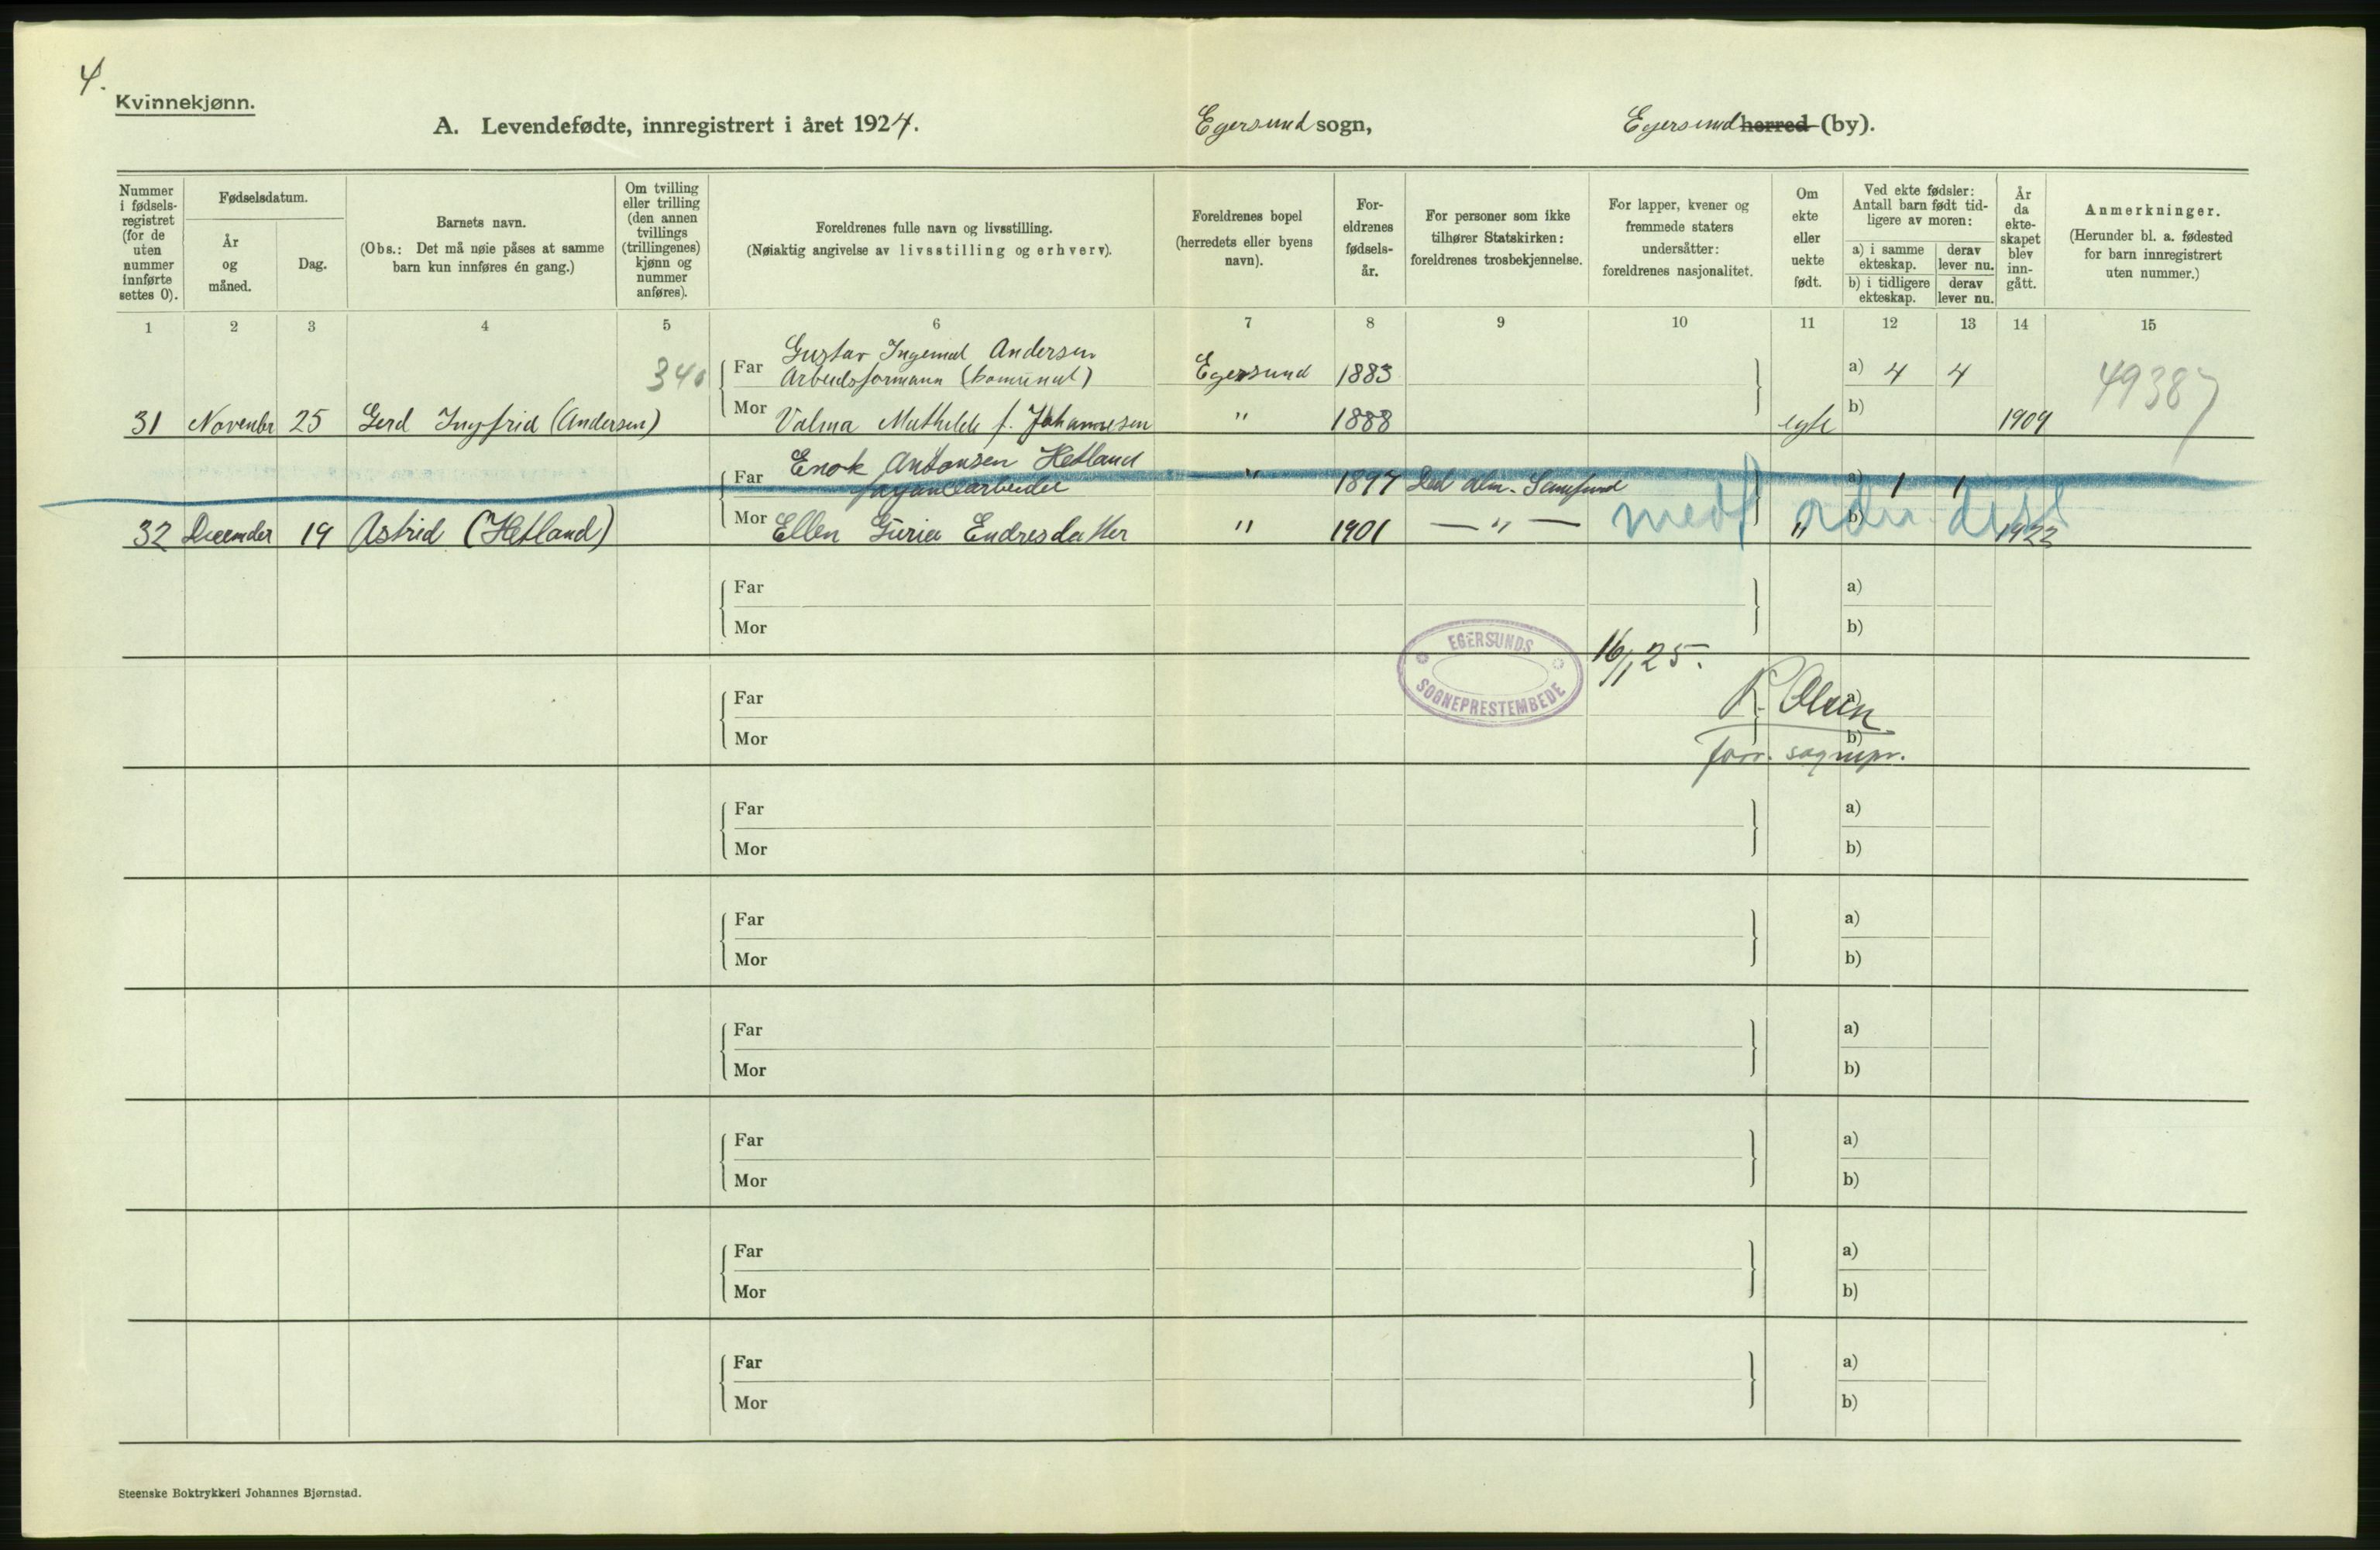 4.
Kvinnekjønn.
A. Levendefødte, innregistrert i året 1924. Egersund sogn, Egersund herred (by).
Nummer i fødsels-registret (for de uten nummer innførte settes 0).
Fødselsdatum.
År og måned.
Dag.
Barnets navn.
(Obs.: Det må nøie påses at samme barn kun innføres én gang.)
Om tvilling eller trilling (den annen tvillings (trillingenes) kjønn og nummer anføres).
Foreldrenes fulle navn og livsstilling.
(Nøiaktig angivelse av livsstilling og erhverv).
Foreldrenes bopel (herredets eller byens navn).
For-eldrenes fødsels-år.
For personer som ikke tilhører Statskirken: foreldrenes trosbekjennelse.
For lapper, kvener og fremmede staters undersåtter: foreldrenes nasjonalitet.
Om ekte eller uekte født.
Ved ekte fødsler: Antall barn født tid-ligere av moren:
a) i samme ekteskap.
derav lever nu.
b) i tidligere ekteskap.
derav lever nu.
År da ekte-skapet blev inn-gått.
Anmerkninger.
(Herunder bl. a. fødested for barn innregistrert uten nummer.)
1 2 3 4 5 6 7 8 9 10 11 12 13 14 15
Gustav Ingemal Andersen
340 Far Arbeidsformann (komunal) Egersund 1883 a) 4 4 49387
31 November 25 Gerd Ingfrid (Andersen) Mor Valma Mathilde f. Johannesen " 1888 egte b) 1909
Enok Antonsen Hetland
Far fayancearbeider " 1897 Det alm. Samfund a) 1 1
32 December 19 Astrid (Hetland) Mor Ellen Guria Endresdatter " 1901 — " — " b) 1922
Far a)
Mor b)
EGERSUNDS
SOGNEPRESTEMBEDE
16/1 25.
Far a)
K. Olsen
Mor b)
sognepr.
Far a)
Mor b)
Far a)
Mor b)
Far a)
Mor b)
Far a)
Mor b)
Far a)
Mor b)
Far a)
Mor b)
Steenske Boktrykkeri Johannes Bjørnstad.